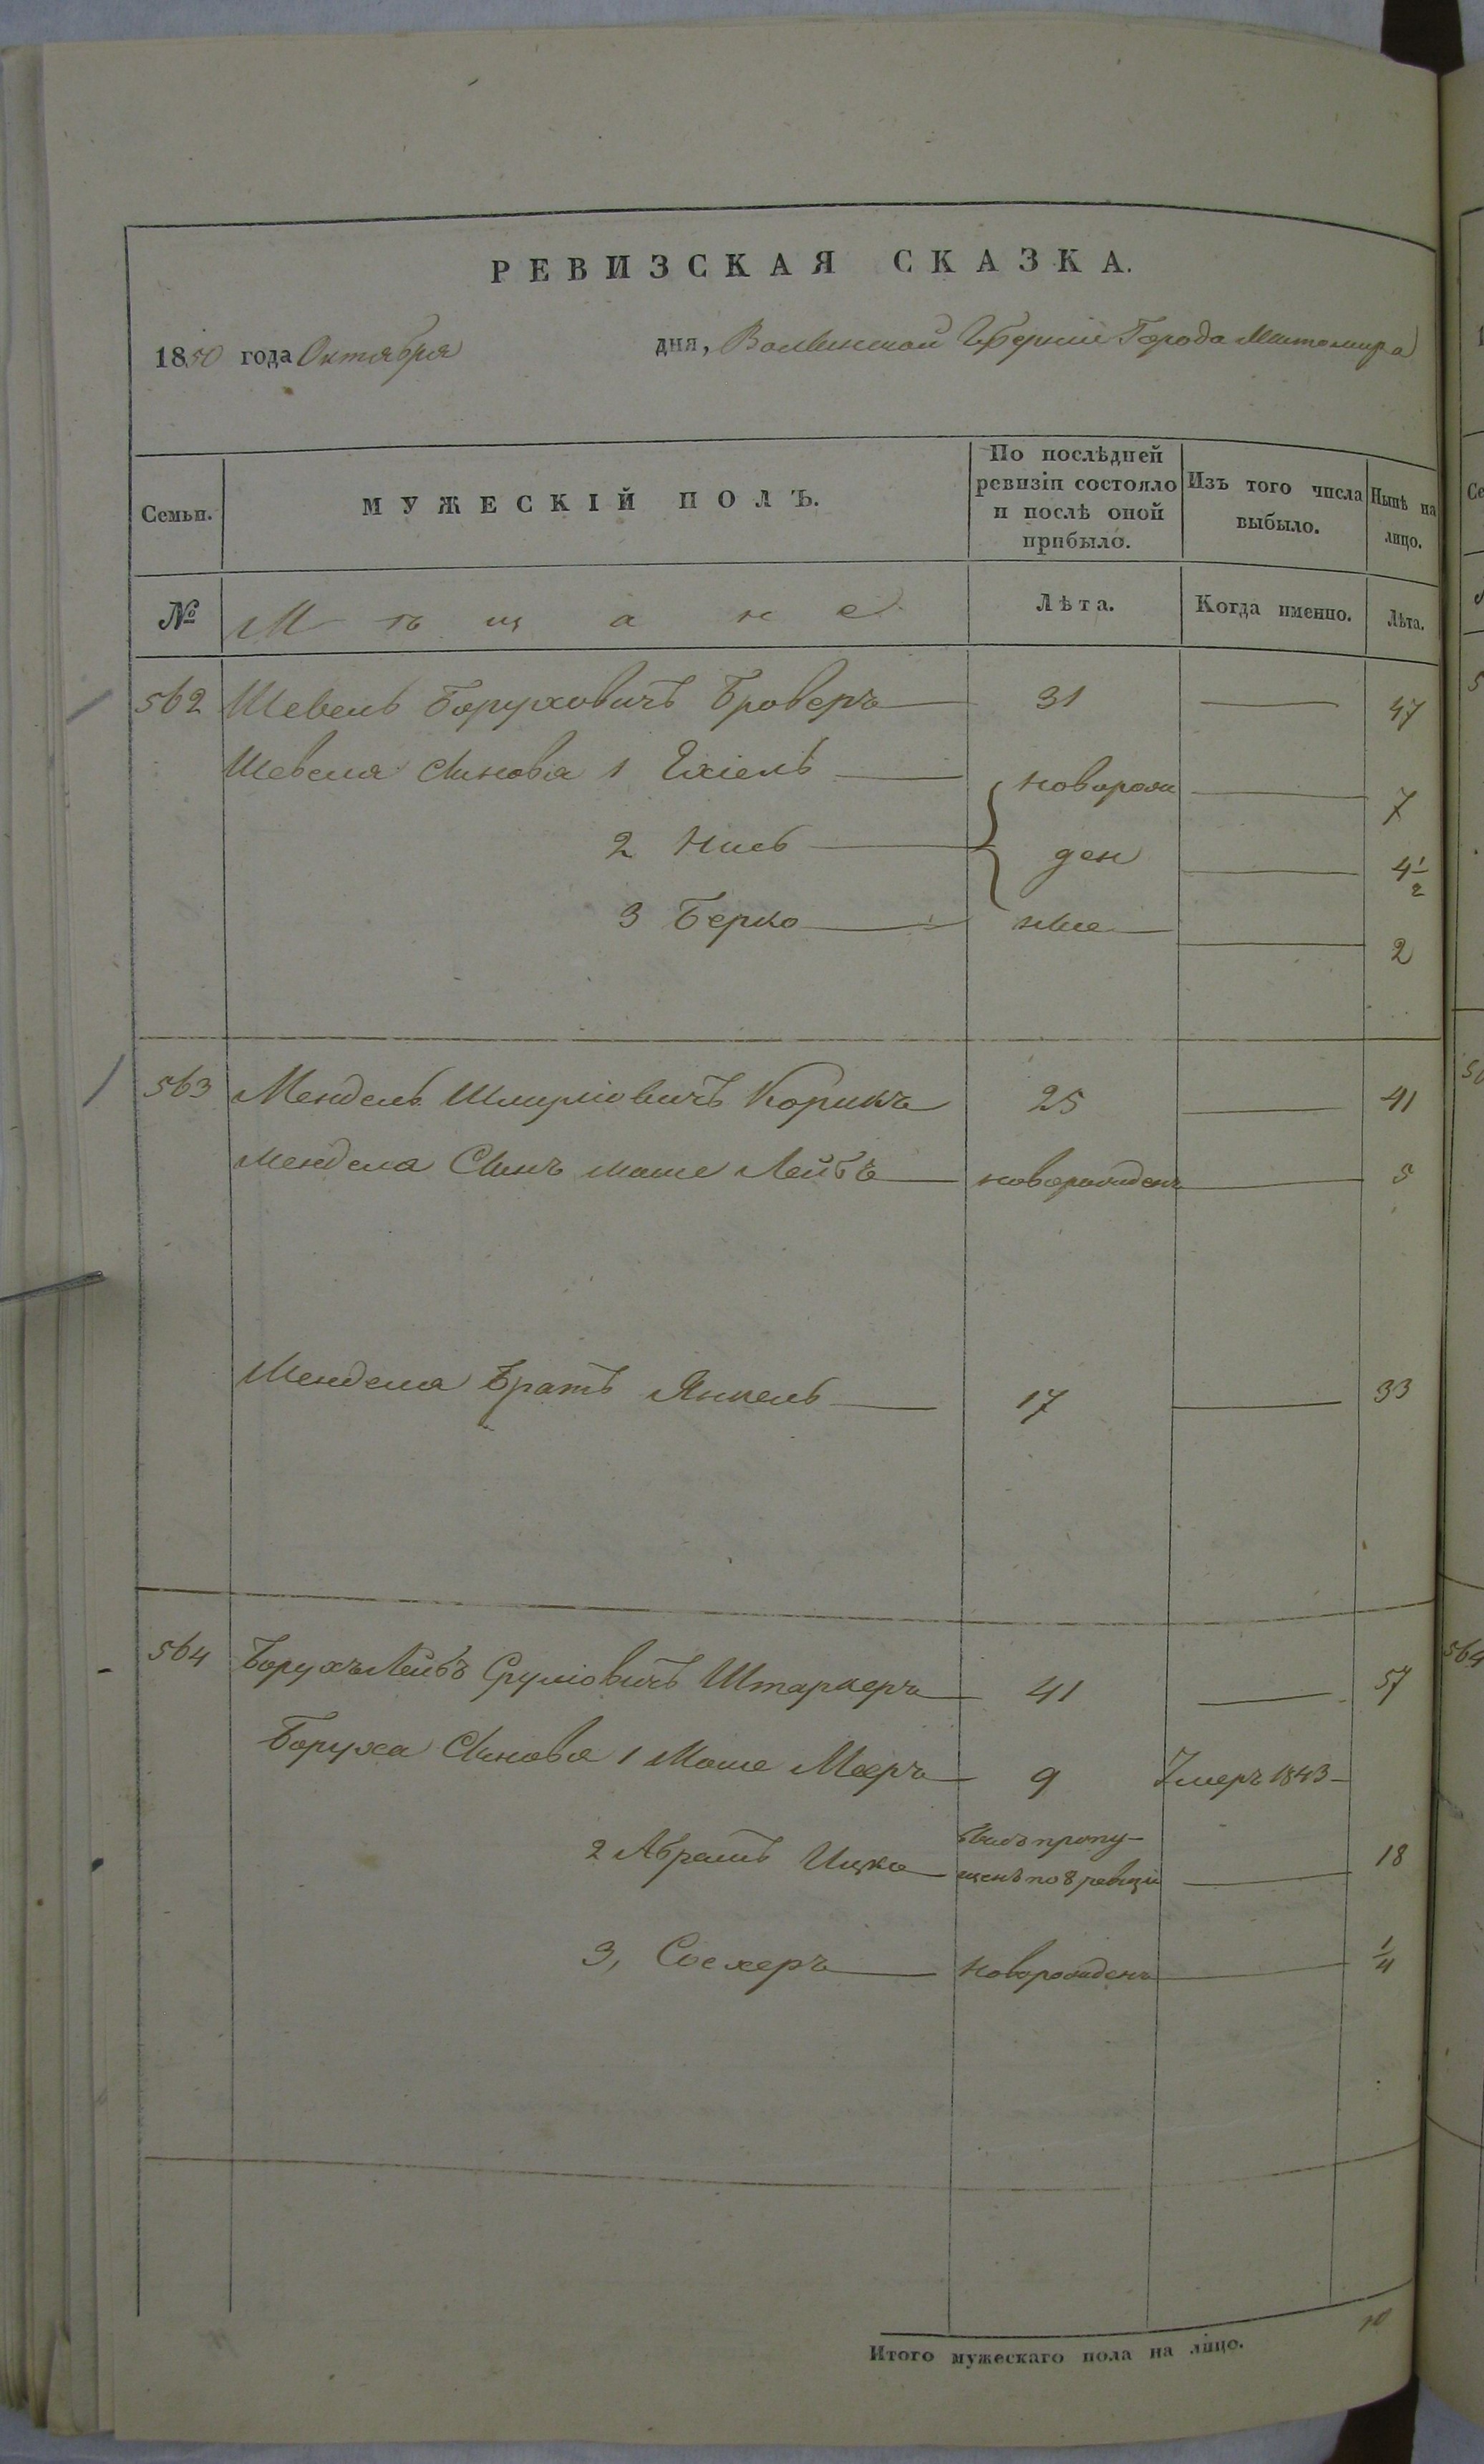 РЕВИЗСКАЯ СКАЗКА.
1850 года Октября дня, Волынской Губерніи Города Житомира
Семьи. МУЖЕСКІЙ ПОЛЪ. По послѣдней ревизіи состояло и послѣ оной прибыло. Изъ того числа выбыло. Нынѣ на лицо.
№ Мѣщане Лѣта. Когда именно. Лѣта.
562 Шевель Боруховичъ Броверъ 31 47
Шевеля Сыновья 1 Ехіель новорож 7
2 Нись ден 4 1/2
3 Берко ные 2
563 Мендель Шмуліовичъ Корикъ 25 41
Менделя Сынъ Моше Лейбъ новорожденъ 5
Менделя Братъ Янкель 17 33
564 Борухъ Лейбъ Сруліовичъ Штаркеръ 41 57
Боруха Сыновья 1 Моше Мееръ 9 Умеръ 1843
2 Абрамъ Ицко былъ пропу-
щенъ по 8 ревизіи 18
3, Соехеръ новорожденъ 1/4
Итого мужескаго пола на лицо. 10